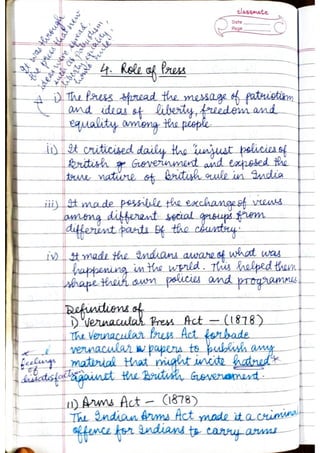 classmate
Date
Page
It was through
the press that new
ideas were spread
such as freedom,
liberty, equality,
home rule.
4. Role of Press
i) The Press spread the message of patriotism
and ideas of liberty, freedom and
equality among the people.
ii) It criticised daily the unjust policies of
British Government and exposed the
true nature of British rule in India
iii) It made possible the exchange of views
among different social groups from
different parts of the country.
iv) It made the Indians aware of what was
happening in the world. This helped them
shape their own policies and programmes
Definitions of
i) Vernacular Press Act – (1878)
The Vernacular Press Act forbade
vernacular papers to publish any
material that might incite hatred *
against the British Government.
* feelings
of
dissatisfaction
ii) Arms Act – (1878)
The Indian Arms Act made it a criminal
offence for Indians to carry arms